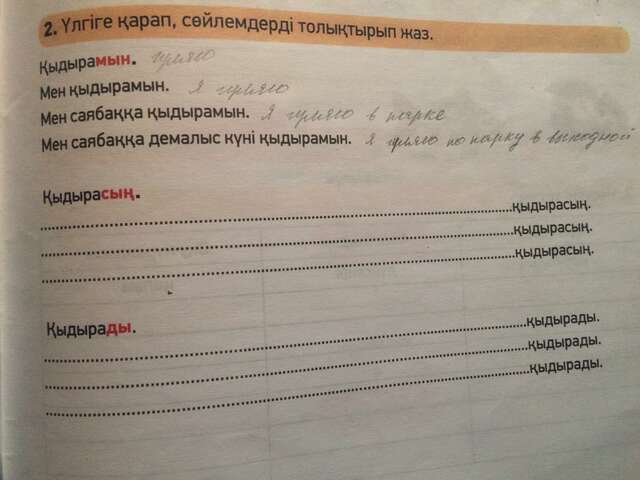 2. Үлгіге қарап, сөйлемдерді толықтырып жаз.
Қыдырамын. гуляю
Мен қыдырамын. я гуляю
Мен саябаққа қыдырамын. я гуляю в парке
Мен саябаққа демалыс күні қыдырамын. я гуляю по парку в выходной
Қыдырасың.
....................қыдырасың.
....................қыдырасың.
....................қыдырасың.
Қыдырады.
....................қыдырады.
....................қыдырады.
....................қыдырады.